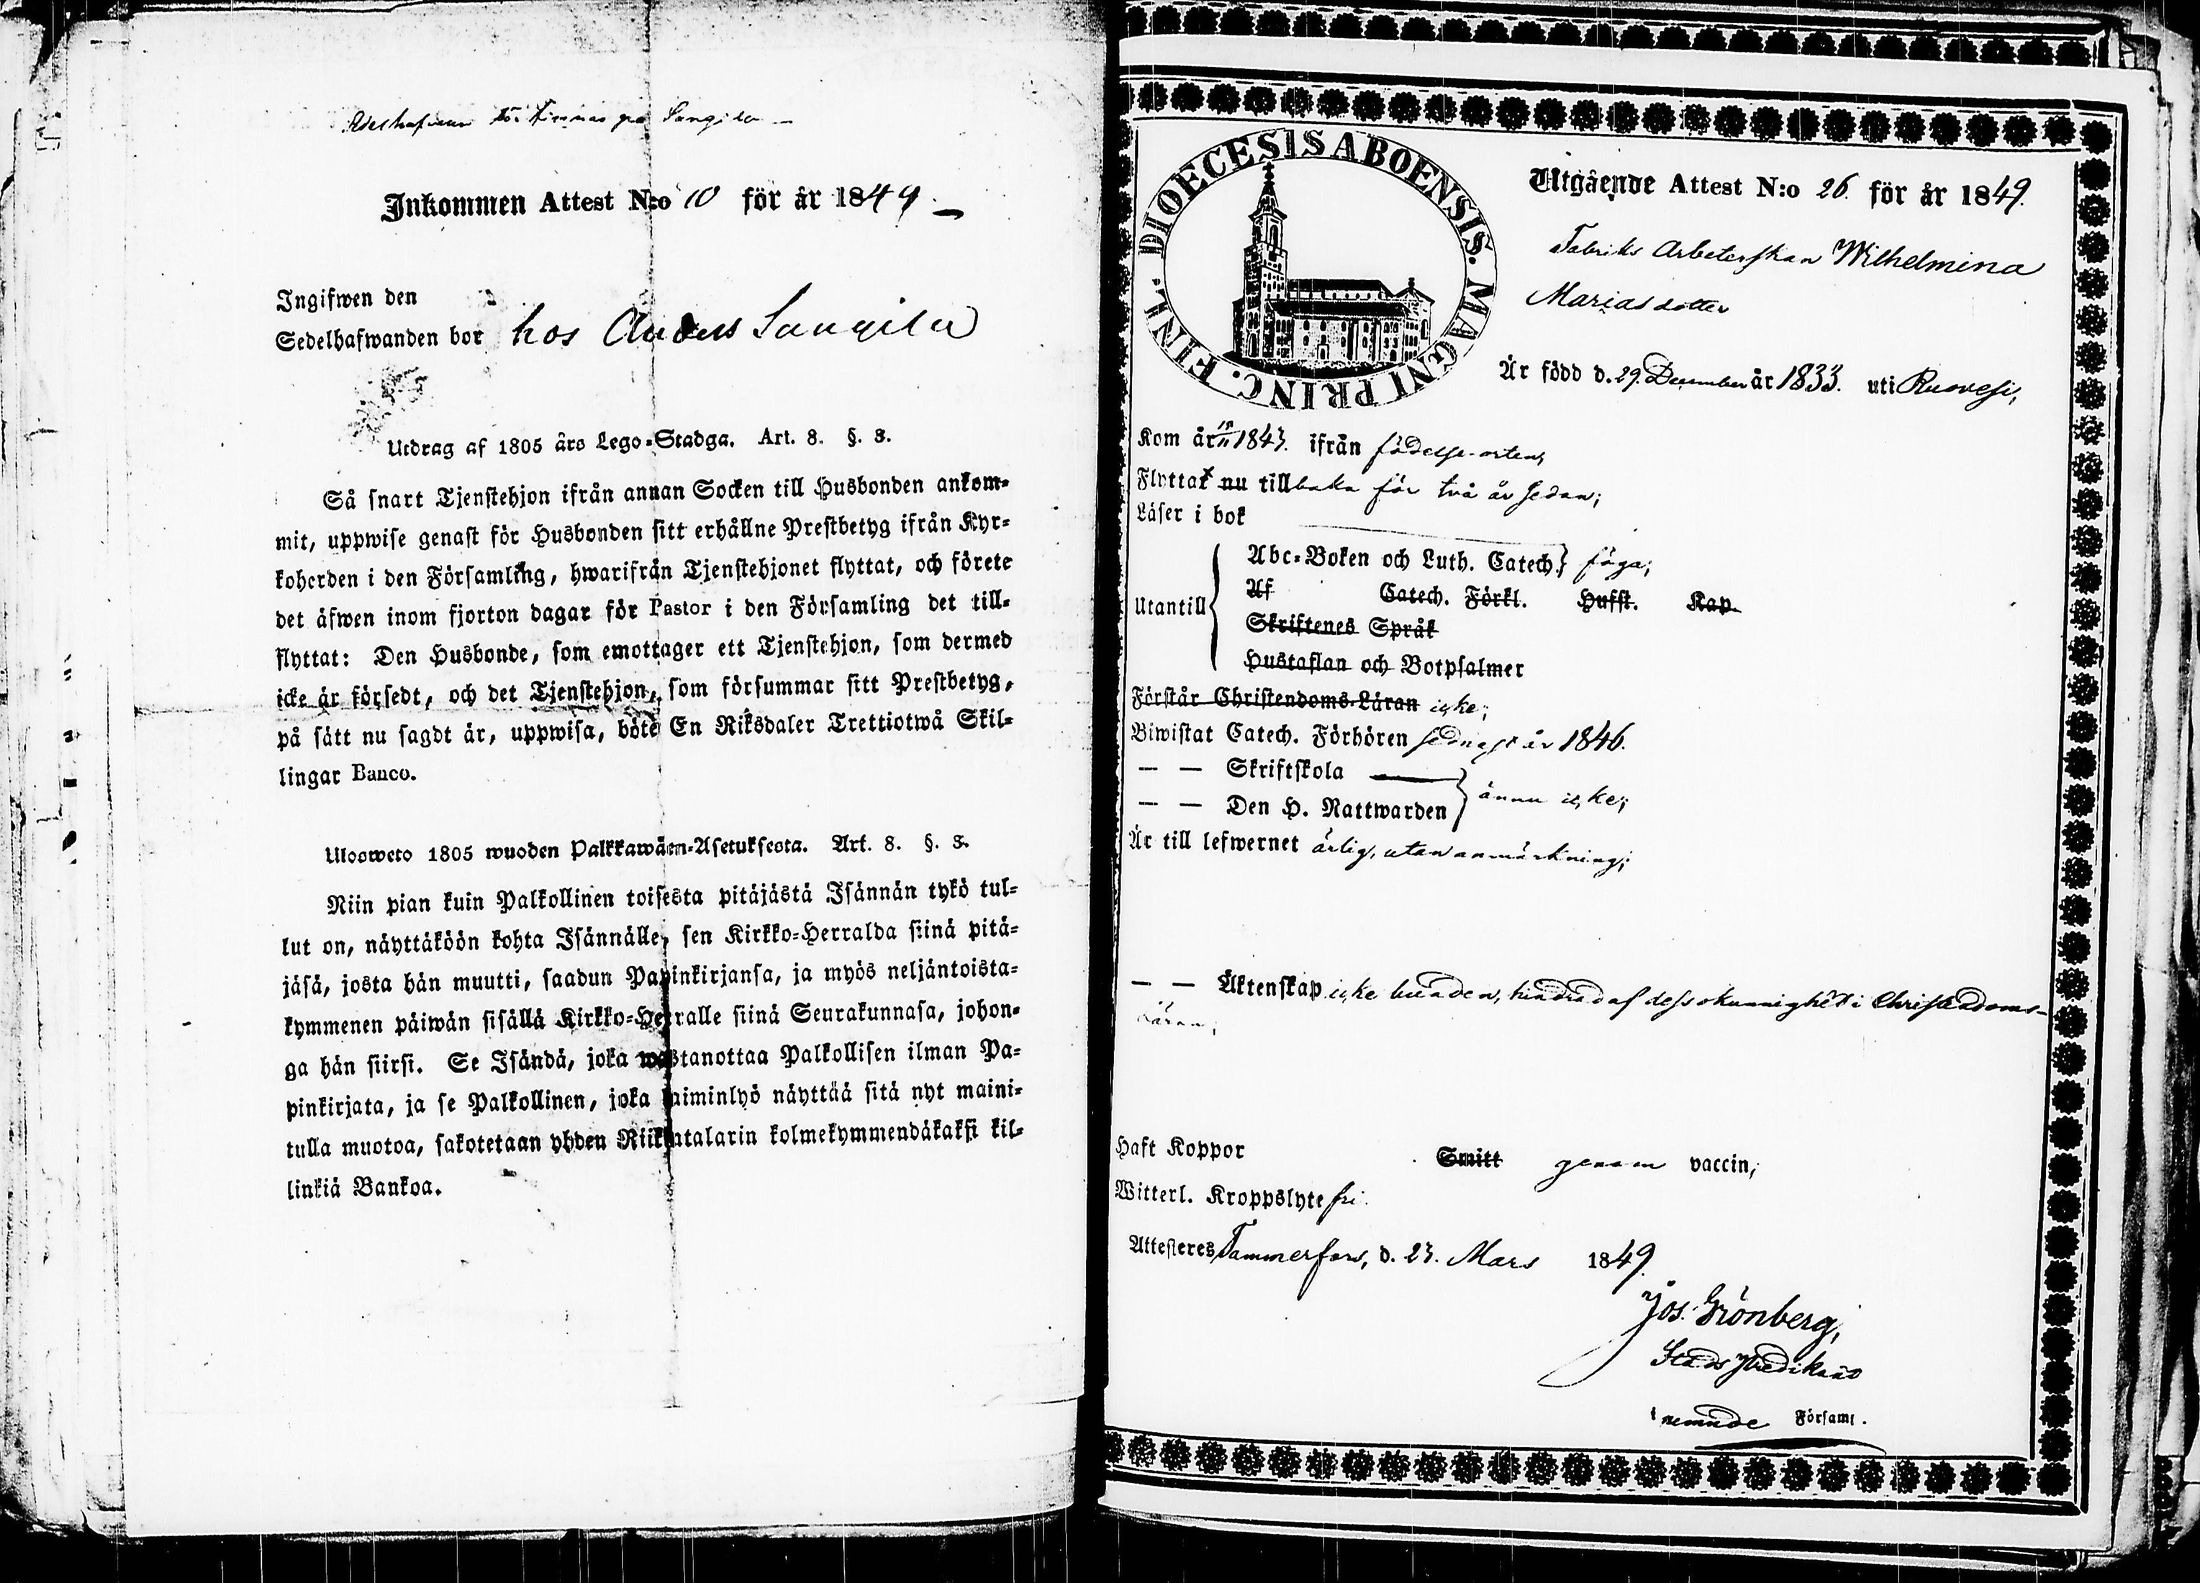 Inkommen Attest N:o 10 för år 1849
Ingifwen den
Sedelhafwanden bor hos Anders Sangila
Utdrag af 1805 års Lego-Stadga. Art. 8. §. 3.
Så snart Tjenstehjon ifrån annan Socken till Husbonden ankom-
mit, uppwise genast för Husbonden sitt erhållne Prestbetyg ifrån Kyr-
koherden i den Församling, hwarifrån Tjenstehjonet flyttat, och förete
det äfwen inom fjorton dagar för Pastor i den Församling det till-
flyttat: Den Husbonde, som emottager ett Tjenstehjon, som dermed
icke är försedt, och det Tjenstehjon, som försummar sitt Prestbetyg,
på sätt nu sagdt är, uppwisa, böte En Riksdaler Trettiotwå Skil-
lingar Banco.
Ulosweto 1805 wuoden Palkkawäen-Asetuksesta. Art. 8. §. 3.
Niin pian kuin Palkollinen toisesta pitäjästä Isännän tykö tul-
lut on, näyttäköön kohta Isännälle, sen Kirkko-Herralda siinä pitä-
jäsä, josta hän muutti, saadun Papinkirjansa, ja myös neljäntoista-
kymmenen päiwän sisällä Kirkko-Herralle siinä Seurakunnasa, johon-
ga hän siirsi. Se Isändä, joka wastanottaa Palkollisen ilman Pa-
pinkirjata, ja se Palkollinen, joka laiminlyö näyttää sitä nyt maini-
tulla muotoa, sakotetaan yhden Riikintalarin kolmekymmendäkaksi kil-
linkiä Bankoa.
DIOECESIS ABOENSIS. MAGNI PRINC. FINL.
Utgående Attest N:o 26. för år 1849.
Fabriks Arbeterskan Wilhelmina
Mariasdotter
Är född d. 29. December år 1833. uti Ruovesi,
Kom år 1843. ifrån födelse-orten,
Flyttat nu tillbaka för två år sedan;
Läser i bok
Abc-Boken och Luth. Catech. föga;
Utantill
Af Catech. Förkl. Hufst. Kap.
Skriftenes Språk
Hustaflan och Botpsalmer
Förstår Christendoms-Läran icke;
Biwistat Catech. Förhören sednast år 1846.
— — Skriftskola
— — Den H. Nattwarden ännu icke;
Är till lefwernet ärlig, utan anmärkning;
— — Äktenskap icke bunden, hindrad af dess okunnighet i Christendoms-
Läran;
Haft Koppor Smitt genom vaccin;
Witterl. Kroppslyte fri.
Attesteres Tammerfors, d. 23. Mars 1849.
Jos. Grönberg,
Stads Predikant
i nemnde Församl.